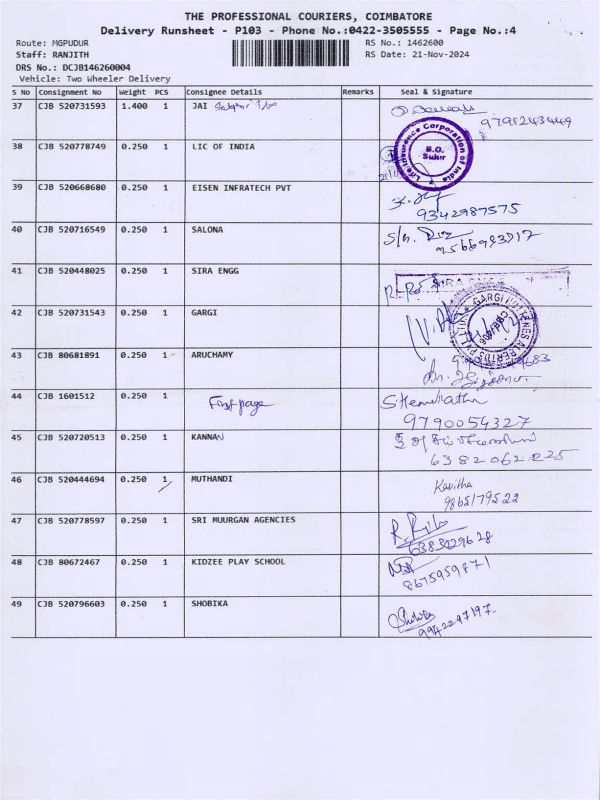 THE PROFESSIONAL COURIERS, COIMBATORE
Delivery Runsheet - P103 - Phone No.:0422-3505555 - Page No.:4
Route: MGPUDUR RS No.: 1462600
Staff: RANJITH RS Date: 21-Nov-2024
DRS No.: DCJB146260004
Vehicle: Two Wheeler Delivery
S No Consignment No Weight PCS Consignee Details Remarks Seal & Signature
37 CJB 520731593 1.400 1 JAI
38 CJB 520778749 0.250 1 LIC OF INDIA
Life Insurance Corporation of India
B.O. Sulur
39 CJB 520668680 0.250 1 EISEN INFRATECH PVT
9342987575
40 CJB 520716549 0.250 1 SALONA
9566983917
41 CJB 520448025 0.250 1 SIRA ENGG
42 CJB 520731543 0.250 1 GARGI
43 CJB 80681891 0.250 1 ARUCHAMY
44 CJB 1601512 0.250 1 First page
9790054327
45 CJB 520720513 0.250 1 KANNAN
46 CJB 520444694 0.250 1 MUTHANDI Kavitha
9865179522
47 CJB 520778597 0.250 1 SRI MUURGAN AGENCIES
48 CJB 80672467 0.250 1 KIDZEE PLAY SCHOOL
8675959871
49 CJB 520796603 0.250 1 SHOBIKA
9942297197